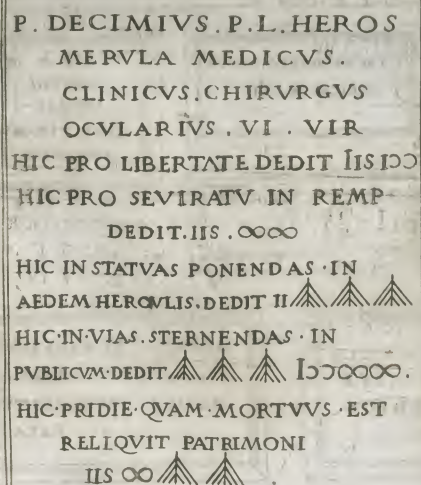 P. DECIMIVS. P. L. HEROS
MERVLA MEDICVS.
CLINICVS. CHIRVRGVS
OCVLARIVS . VI . VIR
HIC PRO LIBERTATE DEDIT IIS IↃↃ
HIC PRO SEVIRATV IN REMP
DEDIT. IIS . ∞∞
HIC IN STATVAS PONENDAS · IN
AEDEM HERCVLIS. DEDIT II
HIC·IN·VIAS. STERNENDAS · IN
PVBLICVM·DEDIT IↃↃ∞∞.
HIC·PRIDIE·QVAM·MORTVVS·EST
RELIQVIT PATRIMONI
IIS ∞